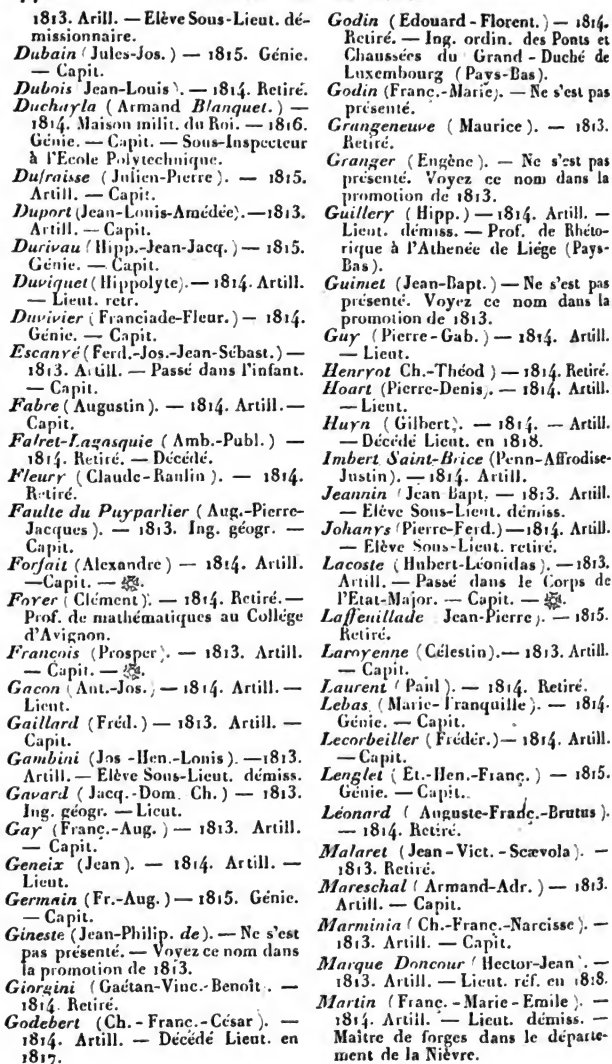 1813. Arill. — Elève Sous-Lieut. dé-
missionnaire.
Dubain (Jules-Jos.) — 1815. Génie.
— Capit.
Dubois Jean-Louis). — 1814. Retiré.
Duchayla (Armand Blanquet.) —
1814. Maison milit. du Roi. — 1816.
Génie. — Capit. — Sous-Inspecteur
à l'Ecole Polytechnique.
Dufraisse (Julien-Pierre). — 1815.
Artill. — Capit.
Duport (Jean-Louis-Amédée). — 1813.
Artill. — Capit.
Durivau (Hipp.-Jean-Jacq.) — 1815.
Génie. — Capit.
Duviquet (Hippolyte). — 1814. Artill.
— Lieut. retr.
Duvivier (Franciade-Fleur.) — 1814.
Génie. — Capit.
Escanyé (Ferd.-Jos.-Jean-Sébast.) —
1813. Artill. — Passé dans l'infant.
— Capit.
Fabre (Augustin). — 1814. Artill. —
Capit.
Falret-Lagasquie (Amb.-Publ.) —
1814. Retiré. — Décédé.
Fleury (Claude-Raulin). — 1814.
Retiré.
Faulte du Puyparlier (Aug.-Pierre-
Jacques). — 1813. Ing. géogr. —
Capit.
Forfait (Alexandre) — 1814. Artill.
— Capit. —
Foyer (Clément). — 1814. Retiré. —
Prof. de mathématiques au Collége
d'Avignon.
Francois (Prosper). — 1813. Artill.
— Capit. —
Gacon (Ant.-Jos.) — 1814. Artill. —
Lieut.
Gaillard (Fréd.) — 1813. Artill. —
Capit.
Gambini (Jos-Hen.-Louis). — 1813.
Artill. — Elève Sous-Lieut. démiss.
Gavard (Jacq.-Dom. Ch.) — 1813.
Ing. géogr. — Lieut.
Gay (Franç.-Aug.) — 1813. Artill.
— Capit.
Geneix (Jean). — 1814. Artill. —
Lieut.
Germain (Fr.-Aug.) — 1815. Génie.
— Capit.
Gineste (Jean-Philip. de). — Ne s'est
pas présenté. — Voyez ce nom dans
la promotion de 1813.
Giorgini (Gaétan-Vinc.-Benoît. —
1814. Retiré.
Godebert (Ch.-Franc.-César). —
1814. Artill. — Décédé Lieut. en
1817.
Godin (Edouard-Florent.) — 1814.
Retiré. — Ing. ordin. des Ponts et
Chaussées du Grand-Duché de
Luxembourg (Pays-Bas).
Godin (Franç.-Marie). — Ne s'est pas
présenté.
Grangeneuve (Maurice). — 1813.
Retiré.
Granger (Eugène). — Ne s'est pas
présenté. Voyez ce nom dans la
promotion de 1813.
Guillery (Hipp.) — 1814. Artill. —
Lieut. démiss. — Prof. de Rhéto-
rique à l'Athenée de Liége (Pays-
Bas).
Guimet (Jean-Bapt.) — Ne s'est pas
présenté. Voyez ce nom dans la
promotion de 1813.
Guy (Pierre-Gab.) — 1814. Artill.
— Lieut.
Henryot Ch.-Théod) — 1814. Retiré.
Hoart (Pierre-Denis). — 1814. Artill.
— Lieut.
Huyn (Gilbert). — 1814. — Artill.
— Décédé Lieut. en 1818.
Imbert Saint-Brice (Penn-Affrodise-
Justin). — 1814. Artill.
Jeannin (Jean Bapt. — 1813. Artill.
— Elève Sous-Lieut. démiss.
Johanys (Pierre-Ferd.) — 1814. Artill.
— Elève Sous-Lieut. retiré.
Lacoste (Hubert-Léonidas). — 1813.
Artill. — Passé dans le Corps de
l'Etat-Major. — Capit. —
Laffeuillade Jean-Pierre). — 1815.
Retiré.
Laroyenne (Célestin). — 1813. Artill.
— Capit.
Laurent (Paul). — 1814. Retiré.
Lebas (Marie-Tranquille). — 1814.
Génie. — Capit.
Lecorbeiller (Fréder.) — 1814. Artill.
— Capit.
Lenglet (Et.-Hen.-Franç.) — 1815.
Génie. — Capit.
Léonard (Auguste-Franç.-Brutus).
— 1814. Retiré.
Malaret (Jean-Vict.-Scævola). —
1813. Retiré.
Mareschal (Armand-Adr.) — 1813.
Artill. — Capit.
Marminia (Ch.-Franç.-Narcisse). —
1813. Artill. — Capit.
Marque Doncour (Hector-Jean). —
1813. Artill. — Lieut. réf. en 1818.
Martin (Franç.-Marie-Emile). —
1814. Artill. — Lieut. démiss. —
Maître de forges dans le départe-
ment de la Nièvre.